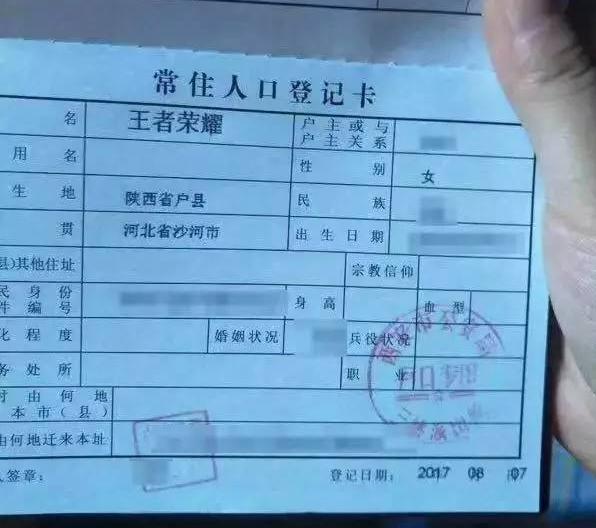 常住人口登记卡
名 王者荣耀 户主或与户主关系
用名 性别 女
生地 陕西省户县 民族
贯 河北省沙河市 出生日期
县)其他住址 宗教信仰
民身份
件编号 身高 血型
化程度 婚姻状况 兵役状况
务处所 职业
时由何地
本市(县)
由何地迁来本址
人签章: 登记日期: 2017 08 07